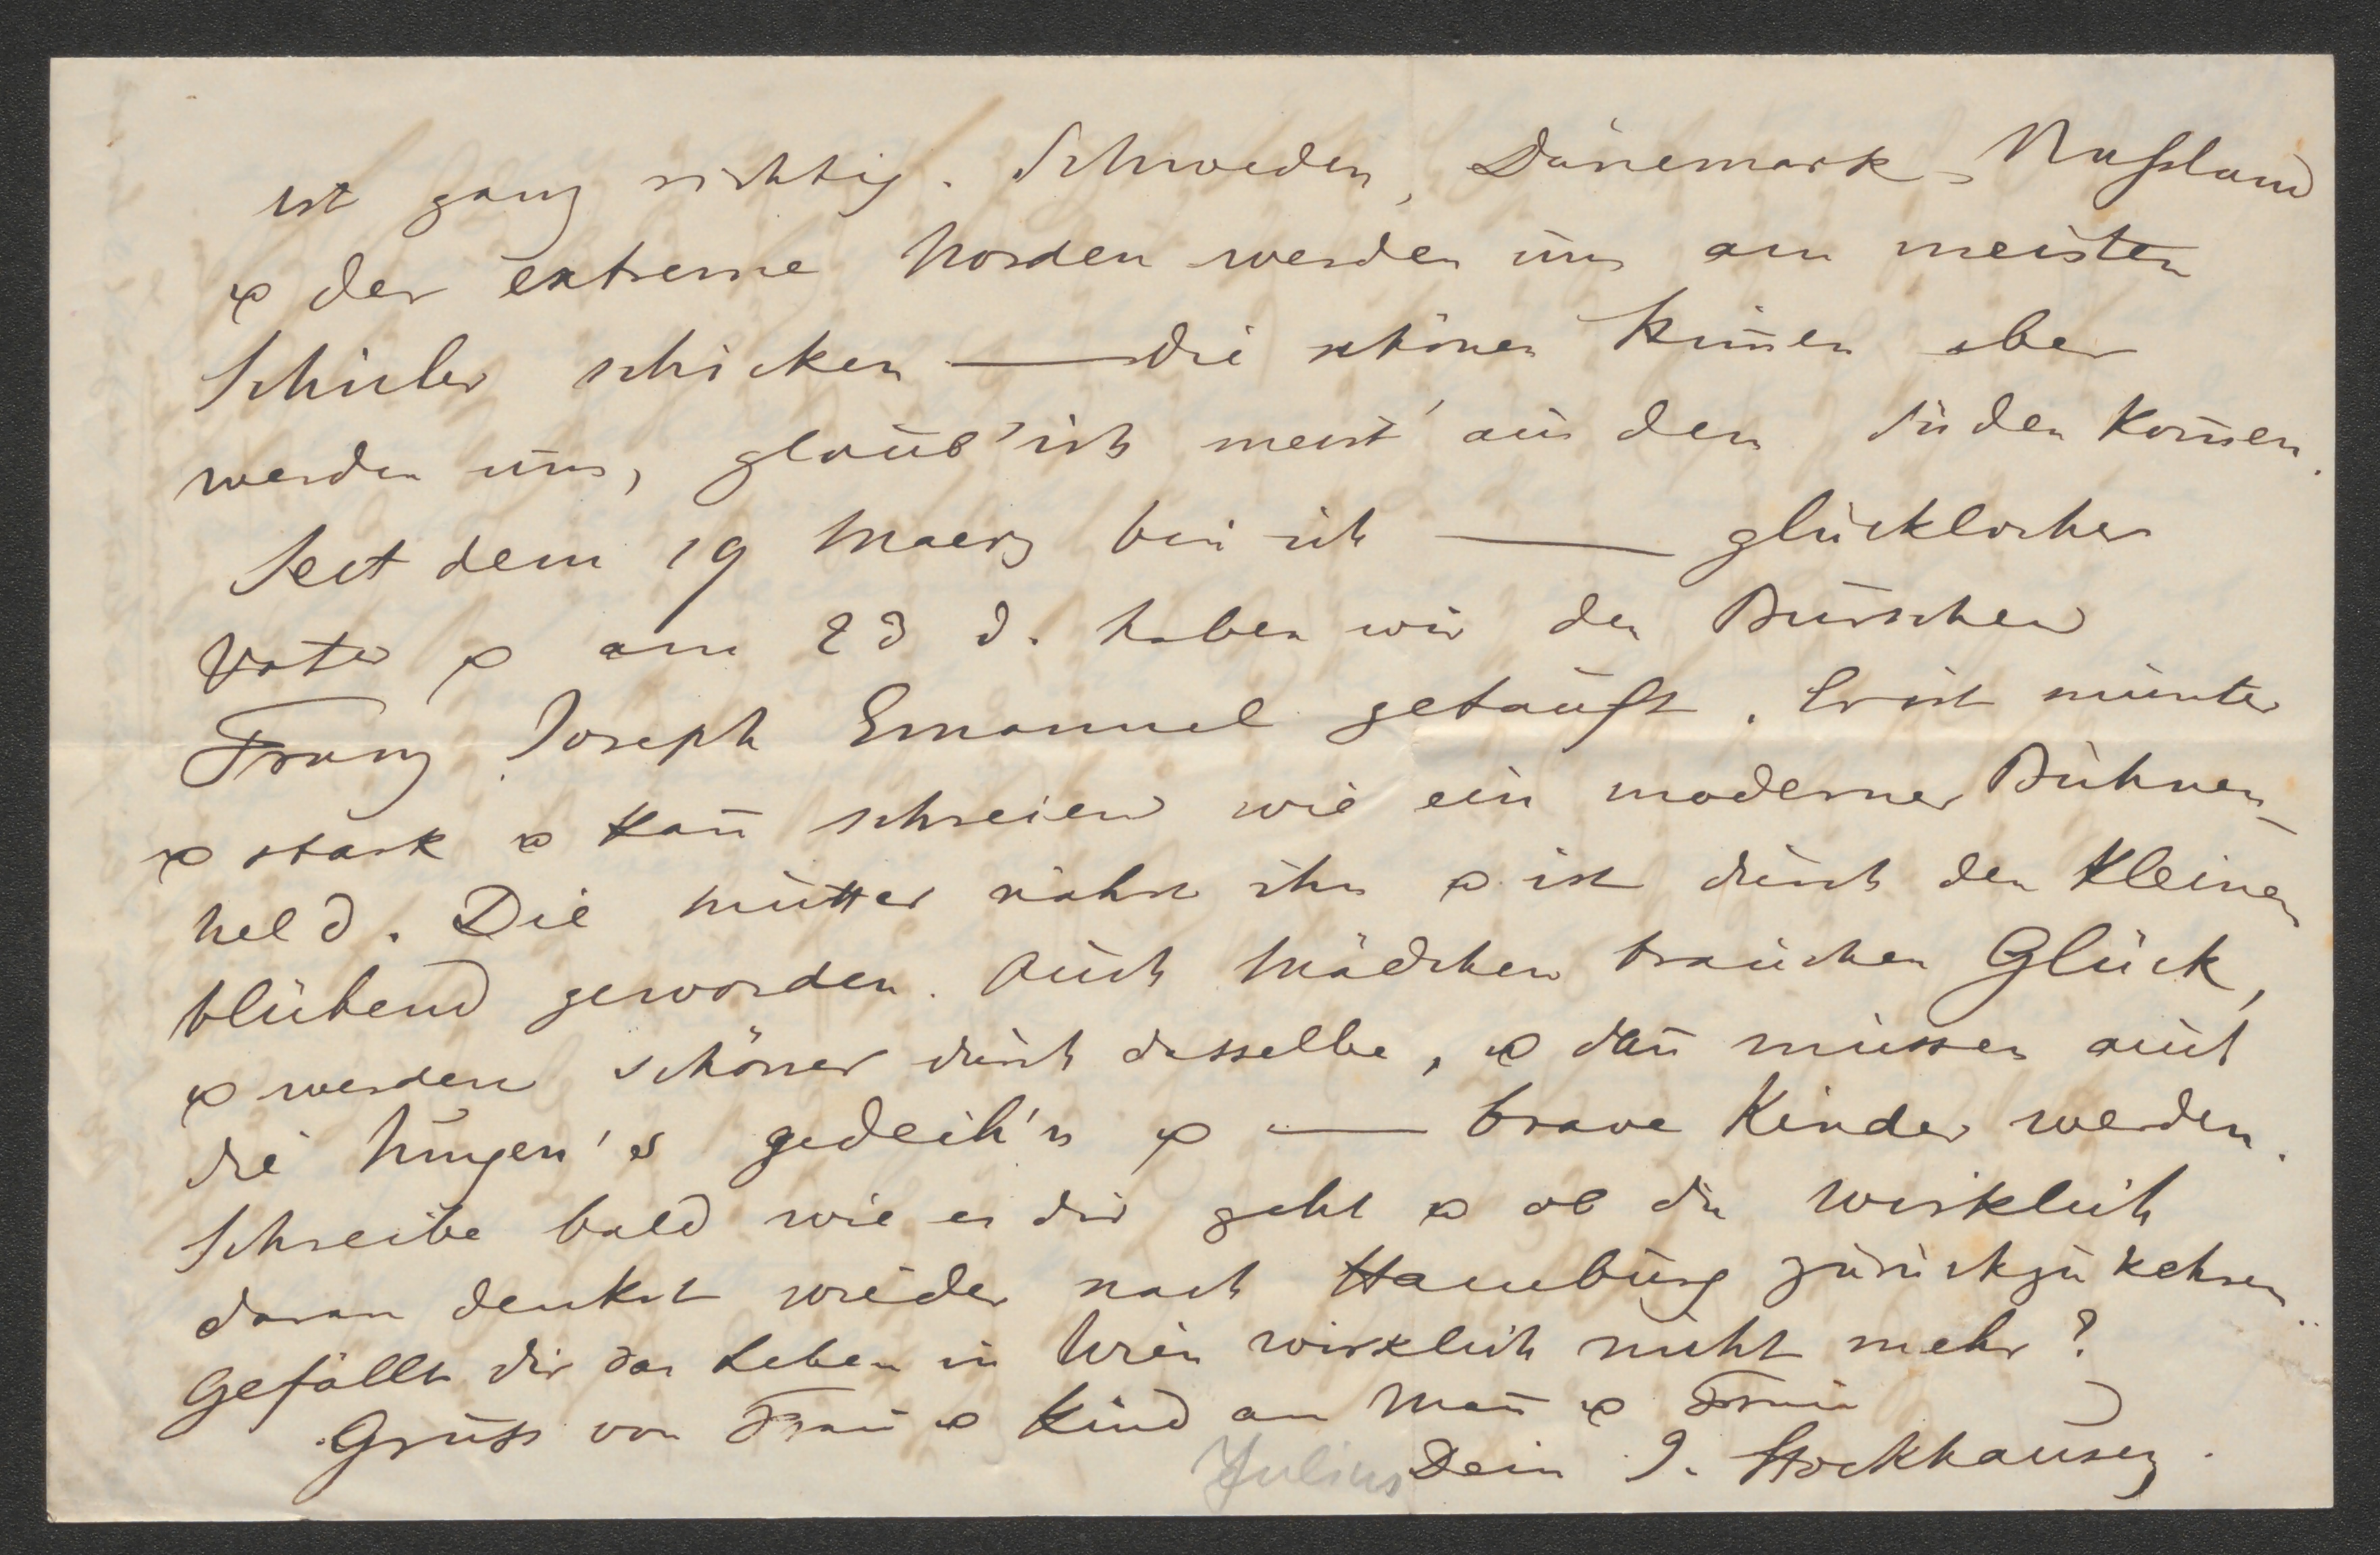 ist ganz richtig. Schweden, Dänemark, Rußland
& der extreme Norden werden uns am meisten
Schüler schicken — die schönen Stim̄en aber
werden uns, glaub' ich meist aus dem Süden kom̄en.
Seit dem 19 Maerz bin ich — glücklicher
Vater & am 23 d. haben wir den Burschen
Franz Joseph Emanuel getauft. Er ist munter
& stark & kan̄ schreien wie ein moderner Bühnen-
held. Die Mutter nährt ihn & ist durch den Kleinen
blühend geworden. Auch Mädchen brauchen Glück,
& werden schöner durch dasselbe, & dan̄ müssen auch
die Jungen's gedeih'n & — brave Kinder werden.
Schreibe bald wie es dir geht & ob du wirklich
daran denkst wieder nach Hamburg zurückzukehren.
Gefällt dir das Leben in Wien wirklich nicht mehr?
Gruss von Frau & Kind an Man̄ & Frau
Julius Dein J. Stockhausen.